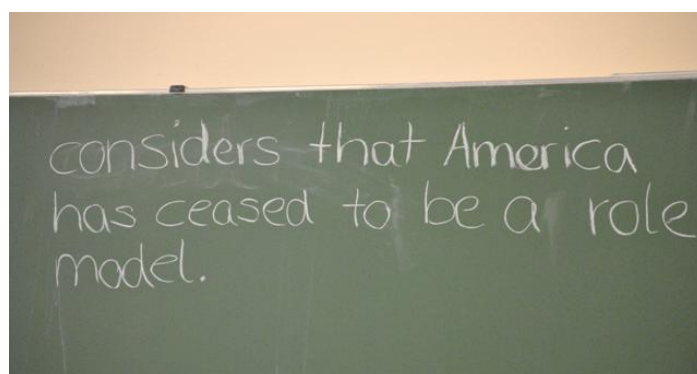 considers that America
has ceased to be a role
model.